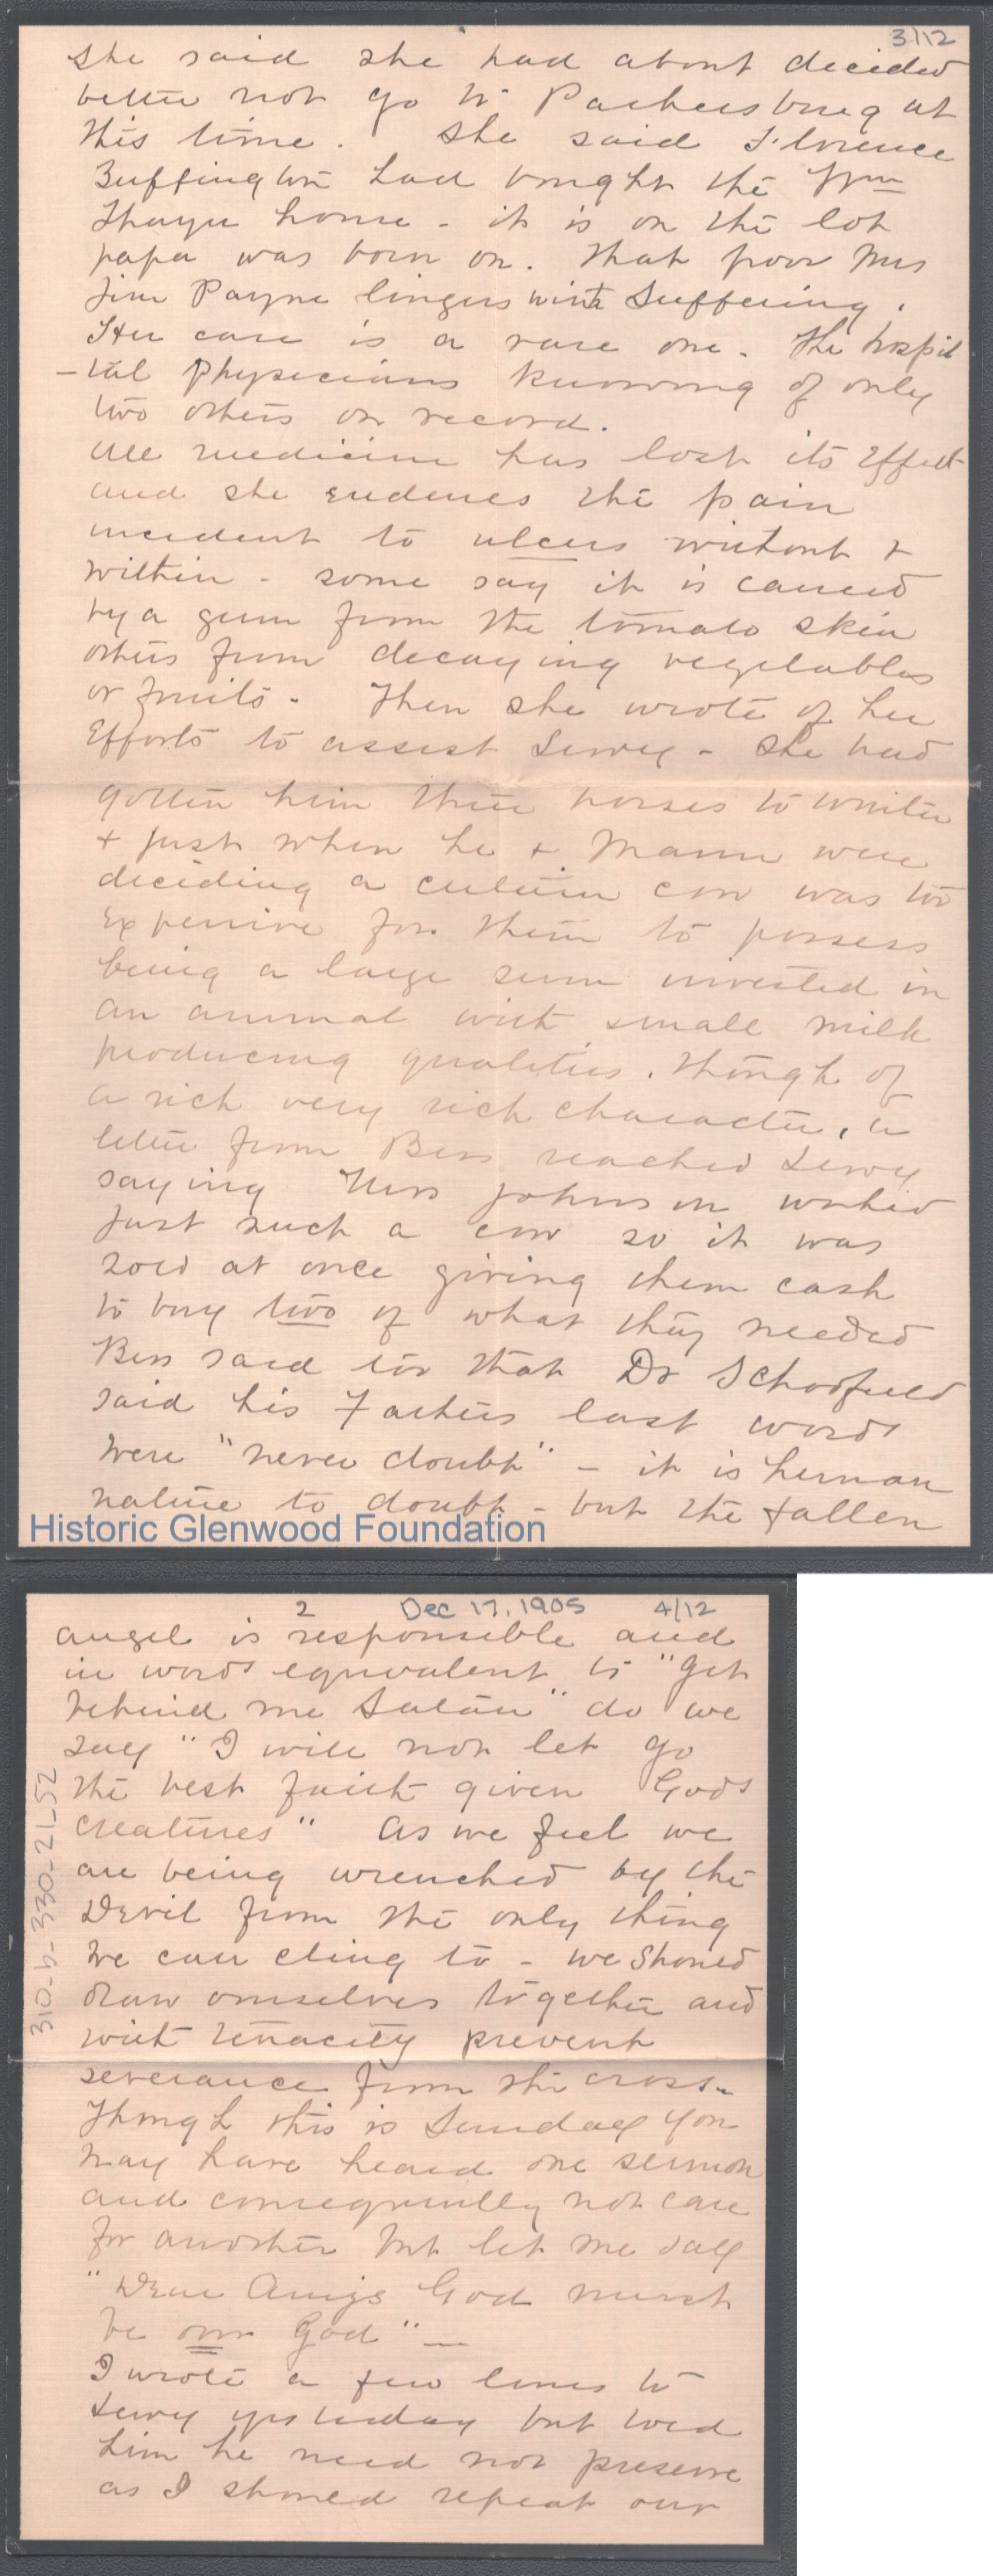 3/12
she said she had about decided
better not go to Parkersburg at
this time. She said Florence
Buffington had bought the Wm
Thayer house - it is on the lot
papa was born on. That poor Mrs
Jim Payne lingers with suffering.
Her case is a rare one. The hospit
-tal physicians knowing of only
two others on record.
All medicine has lost its effect
and she endures the pain
incident to ulcers without &
within - some say it is caused
by a germ from the tomato skin
others from decaying vegetables
or fruits - Then she wrote of her
Efforts to assist Lewy - She had
gotten him three horses to winter
& just when he & Mamie were
deciding a certain cow was too
expensive for them to possess
being a large sum invested in
an animal with small milk
producing qualities, though of
a rich very rich character, a
letter from Bess reached Lewy
saying Mrs Johnson wanted
just such a cow so it was
sold at once giving them cash
to buy two of what they needed
Bess said too that Dr Schoofield
said his Fathers last words
were "never doubt" - it is human
nature to doubt - but the fallen
Historic Glenwood Foundation
2 Dec 17, 1905 4/12
angel is responsible and
in words equivalent to "Get
behind me Satan" do we
say "I will not let go
the best faith given Gods
creatures" As we feel we
are being wrenched by the
Devil from the only thing
we can cling to - we should
draw ourselves together and
with tenacity prevent
severance from the cross -
Though this is Sunday you
may have heard one sermon
and consequently not care
for another but let me say
"Dear Amigs God must
be our God" -
I wrote a few lines to
Lewy yesterday but told
him he need not preserve
as I should repeat our
310-b-330-21-52